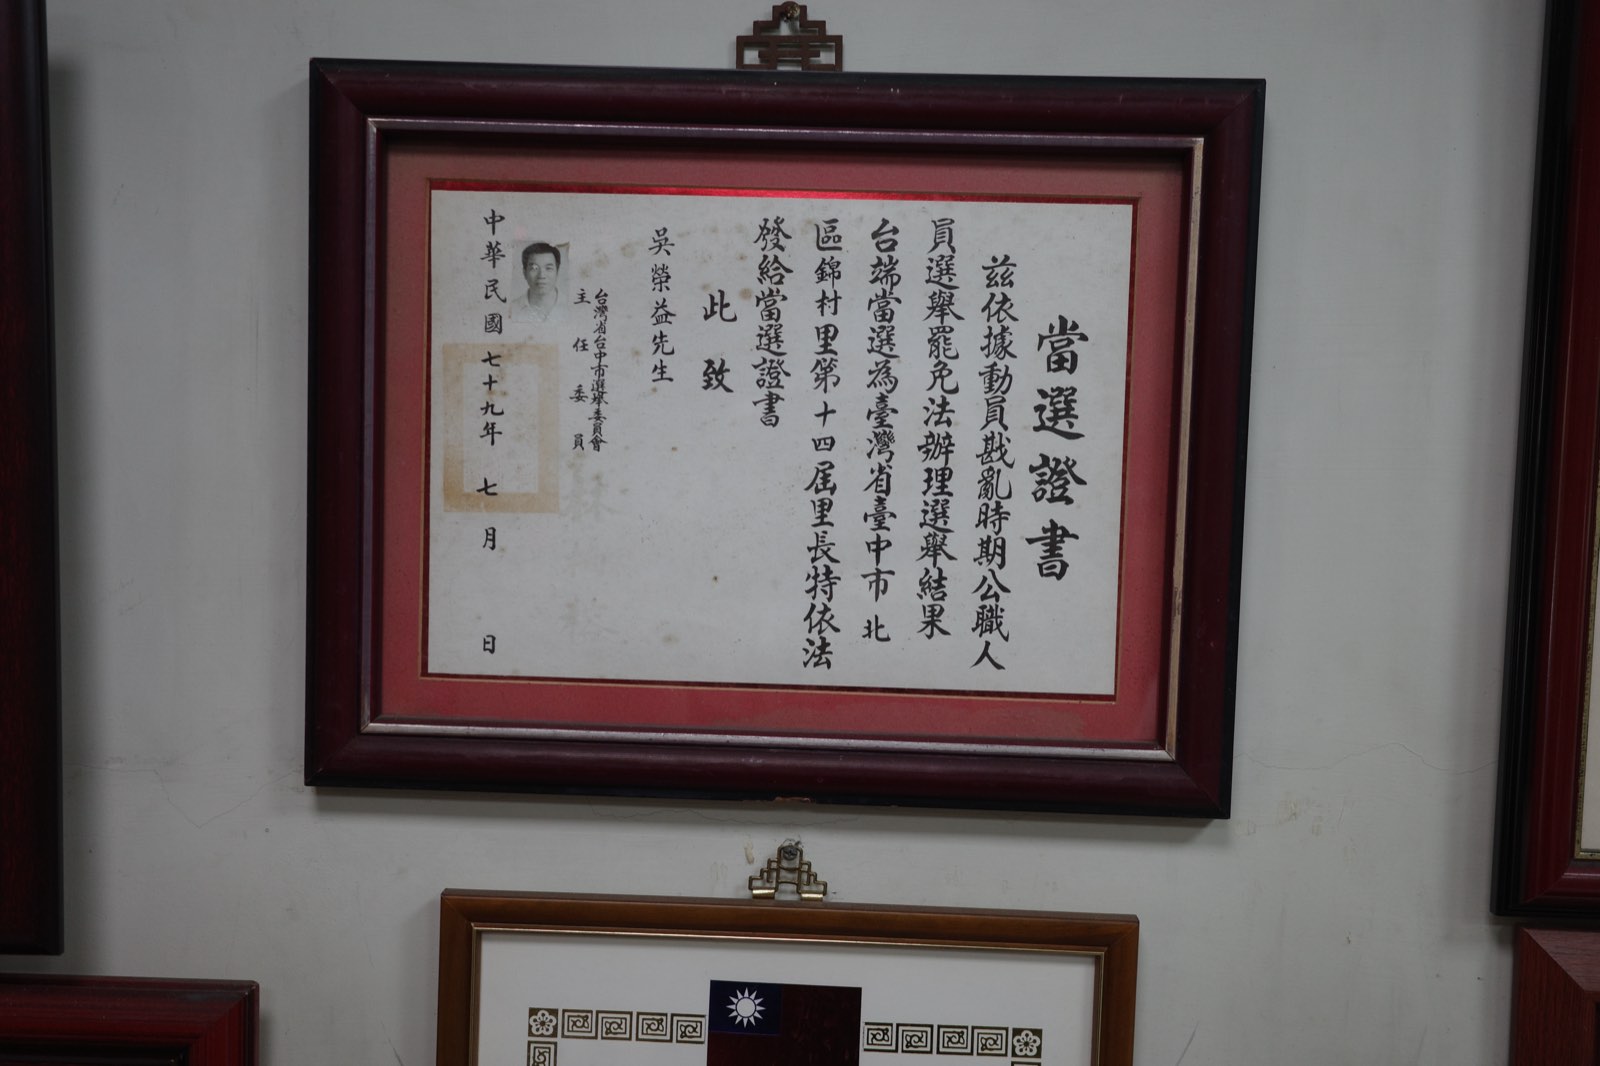 當選證書
茲依據動員戡亂時期公職人
員選舉罷免法辦理選舉結果
台端當選為臺灣省臺中市北
區錦村里第十四屆里長特依法
發給當選證書
此致
吳榮益先生
台灣省台中市選舉委員會
主任委員
中華民國七十九年七月 日